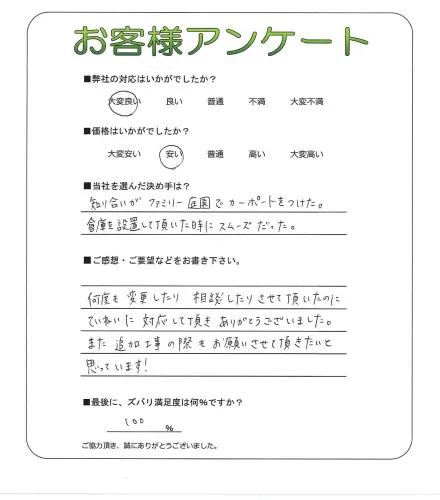 お客様アンケート
■弊社の対応はいかがでしたか？
大変良い 良い 普通 不満 大変不満
■価格はいかがでしたか？
大変安い 安い 普通 高い 大変高い
■当社を選んだ決め手は？
知り合いが ファミリー庭園でカーポートをつけた。
倉庫を設置して頂いた時に スムーズだった。
■ご感想・ご要望などをお書き下さい。
何度も 変更したり 相談したりさせて頂いたのに
ていねいに 対応して頂き ありがとうございました。
また 追加工事の際も お願いさせて頂きたいと
思っています！
■最後に、ズバリ満足度は何%ですか？
100 %
ご協力頂き、誠にありがとうございました。